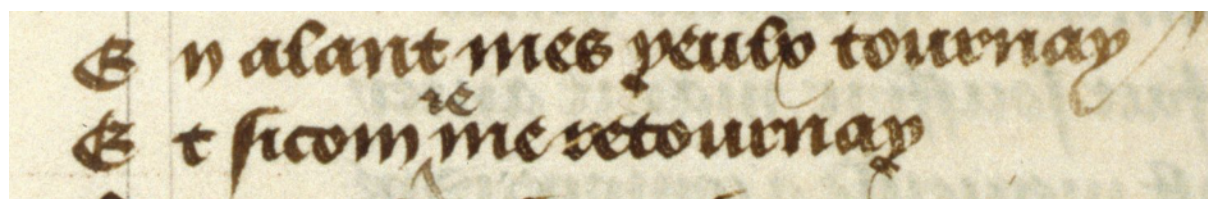 En alant mes yeulx tournay
Et sicom ie me retournay